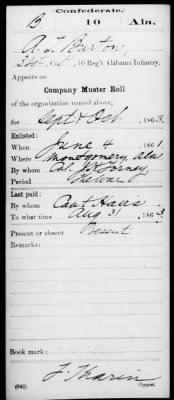 Confederate.
B 10 Ala.
A. T. Burton,
10 Reg't Alabama Infantry.
Appears on
Company Muster Roll
of the organization named above,
for Sept & Oct, 1863.
Enlisted:
When June 4, 1861.
Where Montgomery, Ala
By whom Col. J. H. Forney
Period The war
Last paid:
By whom Capt
To what time Aug 31, 1863.
Present or absent Present
Remarks:
Book mark:
(642) Copyist.